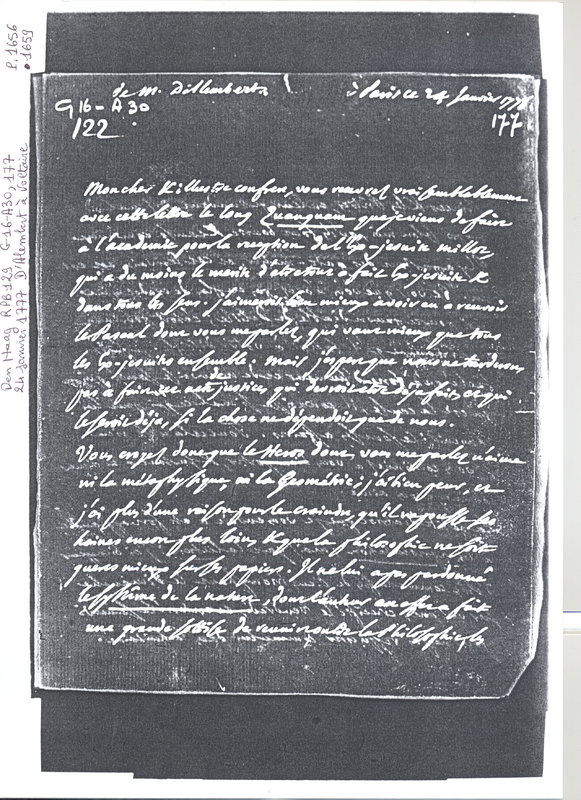 P. 1656
• 1659
Den Haag RPB 129 G 16-A30, 177
24 janvier 1777 D'Alembert à Voltaire
de m. D'Alembert.
à Paris ce 24 Janvier 1777
G 16 - A 30
122
177
Mon cher & illustre confrere, vous recevrez vraisemblablement
avec cette lettre le long Quanquam que je viens de faire
à l'académie pour la reception de l'Ex-jesuite millot,
qui a du moins le merite d'etre tout à fait Ex-jesuite &
dans tous les sens. j'aimerois bien mieux avoir eu à recevoir
le Pascal dont vous me parlez, qui vaut mieux que tous
les Ex-jesuites ensemble. mais j'espere que nous ne tarderons
pas à faire cet acte de justice, qui devroit etre deja fait, et qui
le seroit deja, si la chose ne dépendoit que de nous.
Vous croyez donc que le Heros dont vous me parlez n'aime
ni la métaphysique ni la Géométrie; j'ai bien peur, et
j'ai plus d'une raison pour le craindre, qu'il ne pousse ses
haines encore plus loin, & que la philosophie ne soit
gueres mieux sur ses papiers. Il n'a pas pardonné
le systême de la nature, dont l'auteur en effet a fait
une grande sottise de reunir contre la Philosophie, les